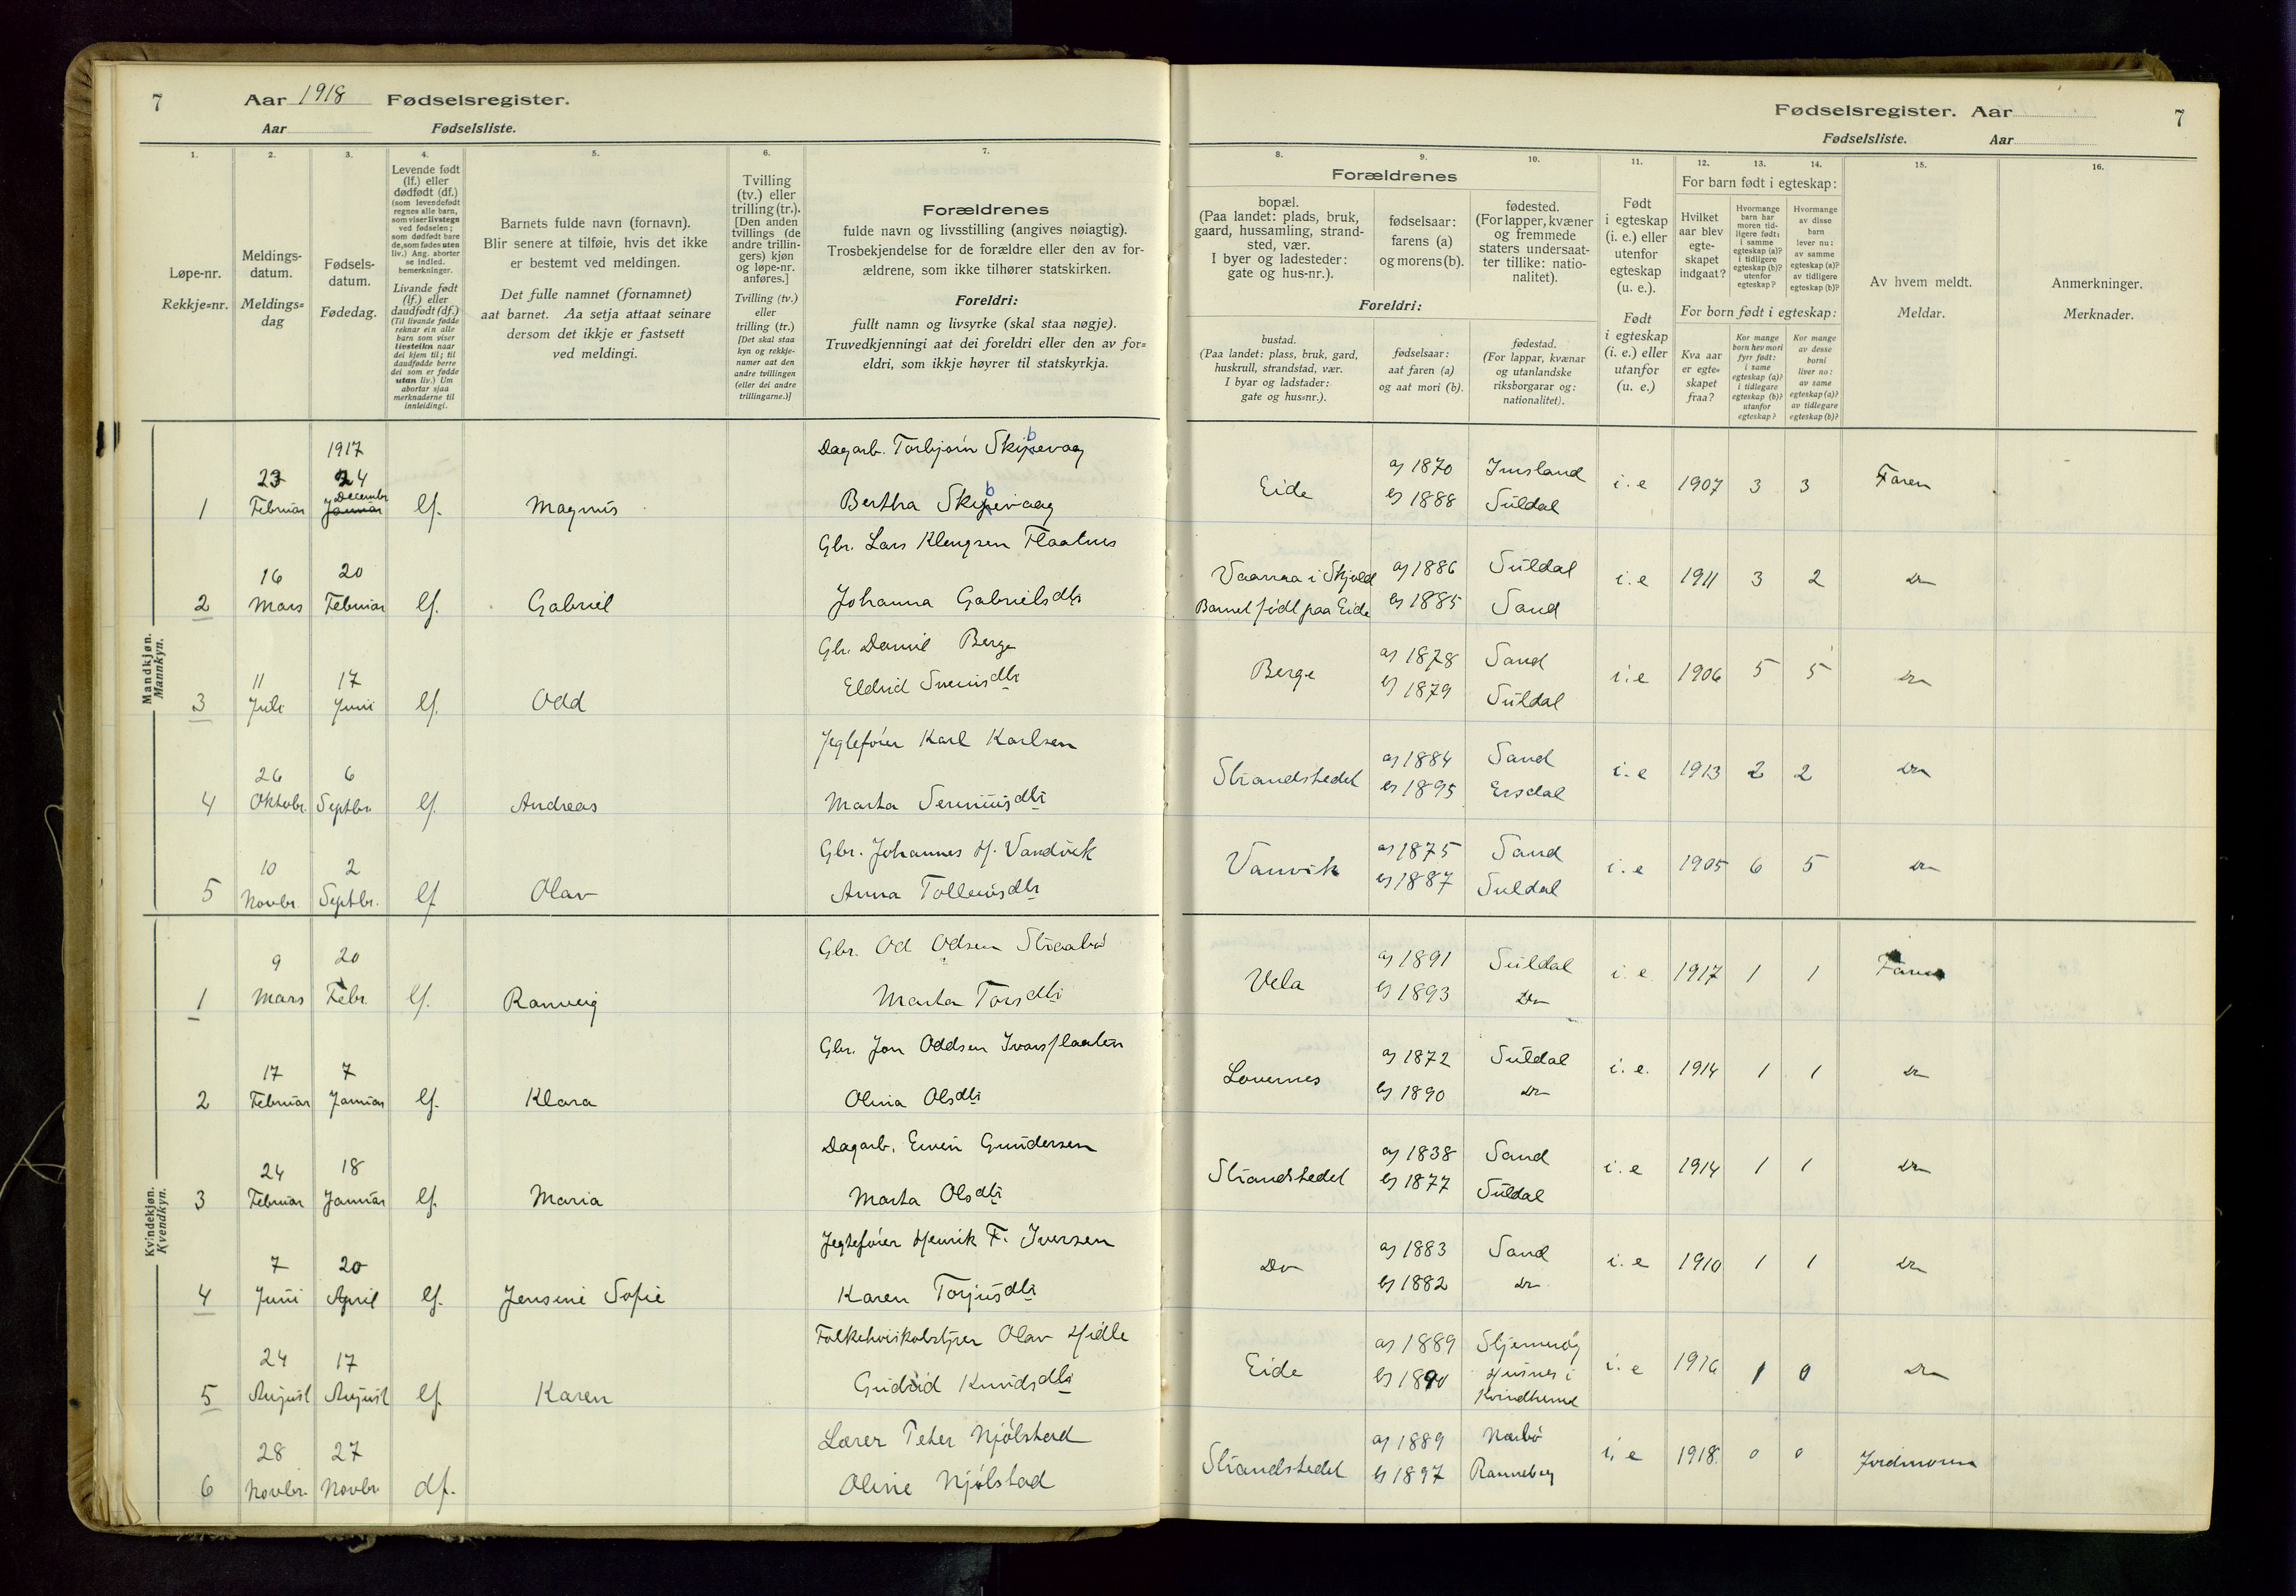 7 Aar 1918 Fødselsregister.
Aar Fødselsliste.
Fødselsregister. Aar 7
Fødselsliste. Aar
1. 2. 3. 4. 5. 6. 7.
Løpe-nr.
Rekkje=nr.
Meldings-
datum.
Meldings=
dag
Fødsels-
datum.
Fødedag.
Levende født
(lf.) eller
dødfødt (df.)
(som levendefødt
regnes alle barn,
som viser livstegn
ved fødselen;
som dødfødt bare
de, som fødes uten
liv.) Ang. aborter
se indled.
bemerkninger.
Livande født
(lf.) eller
daudfødt (df.)
(Til livande fødde
reknar ein alle
barn som viser
livsteikn naar
dei kjem til; til
daudfødde berre
dei som er fødde
utan liv.) Um
abortar sjaa
merknaderne til
innleidingi.
Barnets fulde navn (fornavn).
Blir senere at tilføie, hvis det ikke
er bestemt ved meldingen.
Det fulle namnet (fornamnet)
aat barnet. Aa setja attaat seinare
dersom det ikkje er fastsett
ved meldingi.
Tvilling
(tv.) eller
trilling (tr.).
[Den anden
tvillings (de
andre trillin-
gers) kjøn
og løpe-nr.
anføres.]
Tvilling (tv.)
eller
trilling (tr.)
[Det skal staa
kyn og rekkje-
numer aat den
andre tvillingen
(eller dei andre
trillingarne.)]
Forældrenes
fulde navn og livsstilling (angives nøiagtig).
Trosbekjendelse for de forældre eller den av for-
ældrene, som ikke tilhører statskirken.
Foreldri:
fullt namn og livsyrke (skal staa nøgje).
Truvedkjenningi aat dei foreldri eller den av for=
eldri, som ikkje høyrer til statskyrkja.
8. 9. 10. 11. 12. 13. 14. 15. 16.
Forældrenes
bopæl.
(Paa landet: plads, bruk,
gaard, hussamling, strand-
sted, vær.
I byer og ladesteder:
gate og hus-nr.).
fødselsaar:
farens (a)
og morens (b).
fødested.
(For lapper, kvæner
og fremmede
staters undersaat-
ter tillike: natio-
nalitet).
Foreldri:
bustad.
(Paa landet: plass, bruk, gard,
huskrull, strandstad, vær.
I byar og ladstader:
gate og hus=nr.).
fødselsaar:
aat faren (a)
og aat mori (b).
fødestad.
(For lappar, kvænar
og utanlandske
riksborgarar og:
nationalitet).
Født
i egteskap
(i. e.) eller
utenfor
egteskap
(u. e.).
Født
i egteskap
(i. e.) eller
utanfor
(u. e.)
For barn født i egteskap:
Hvilket
aar blev
egte-
skapet
indgaat?
Hvormange
barn har
moren tid-
ligere født:
i samme
egteskap (a)?
i tidligere
egteskap (b)?
utenfor
egteskap?
Hvormange
av disse
barn
lever nu:
av samme
egteskap (a)?
av tidligere
egteskap (b)?
For born født i egteskap:
Kva aar
er egte=
skapet
fraa?
Kor mange
born hev mori
fyrr født:
i same
egteskap (a)?
i tidlegare
egteskap (b)?
utanfor
egteskap?
Kor mange
av desse
borni
liver no:
av same
egteskap (a)?
av tidlegare
egteskap (b)?
Av hvem meldt.
Meldar.
Anmerkninger.
Merknader.
Mandkjøn.
Mannkyn.
1 23 Februar 1917 24 December Januar lf. Magnus
Dagarb. Torbjørn Skipevaag b
Bertha Skipevaag b
Eide a) 1870 b) 1888 Imsland Suldal i. e 1907 3 3 Faren
2 16 Mars 20 Februar lf. Gabriel
Gbr. Lars Klengsen Flaatnes
Johanna Gabrielsdtr
Vaanaa i Skjold
Barnet født paa Eide
a) 1886 b) 1885 Suldal Sand i. e 1911 3 2 Do
3 11 Juli 17 Juni lf. Odd
Gbr. Daniel Berge
Eldrid Sveinsdtr
Berge a) 1878 b) 1879 Sand Suldal i. e 1906 5 5 Do
4 26 Oktobr. 6 Septbr. lf. Andreas
Jegtefører Karl Karlsen
Marta
Strandstedet a) 1884 b) 1895 Sand Ersdal i. e 1913 2 2 Do
5 10 Novbr. 2 Septbr. lf Olav
Gbr. Johannes H. Vandvik
Anna Tolleivsdtr
Vanvik a) 1875 b) 1887 Sand Suldal i. e 1905 6 5 Do
Kvindekjøn.
Kvendkyn.
1 9 Mars 20 Febr. lf. Ranveig
Gbr. Od Odsen Straabø
Marta Torsdtr
Vela a) 1891 b) 1893 Suldal Do i. e 1917 1 1 Faren
2 17 Februar 7 Januar lf. Klara
Gbr. Jon Oddsen Ivarsflaaten
Olina Olsdtr
Lovernes a) 1872 b) 1890 Suldal Do i. e. 1914 1 1 Do
3 24 Februar 18 Januar lf. Maria
Dagarb. Gundersen
Marta Olsdtr
Strandstedet a) 1838 b) 1877 Sand Suldal i. e 1914 1 1 Do
4 7 Juni 20 April lf. Jensine Sofie
Jegtefører Henrik F. Iversen
Karen Torjusdtr
Do a) 1883 b) 1882 Sand Do i. e 1910 1 1 Do
5 24 August 17 August lf. Karen
Folkehøiskolestyrer Olav Hidle
Gudrid Knudsdtr
Eide a) 1889 b) 1890 Stjernerøy Husnes i Kvindherred i. e 1916 1 0 Do
6 28 Novbr. 27 Novbr. df.
Lærer Peter Njölstad
Oline Njölstad
Strandstedet a) 1889 b) 1897 Nærbø Ranneberg i. e 1918. 0 0 Jordmoren